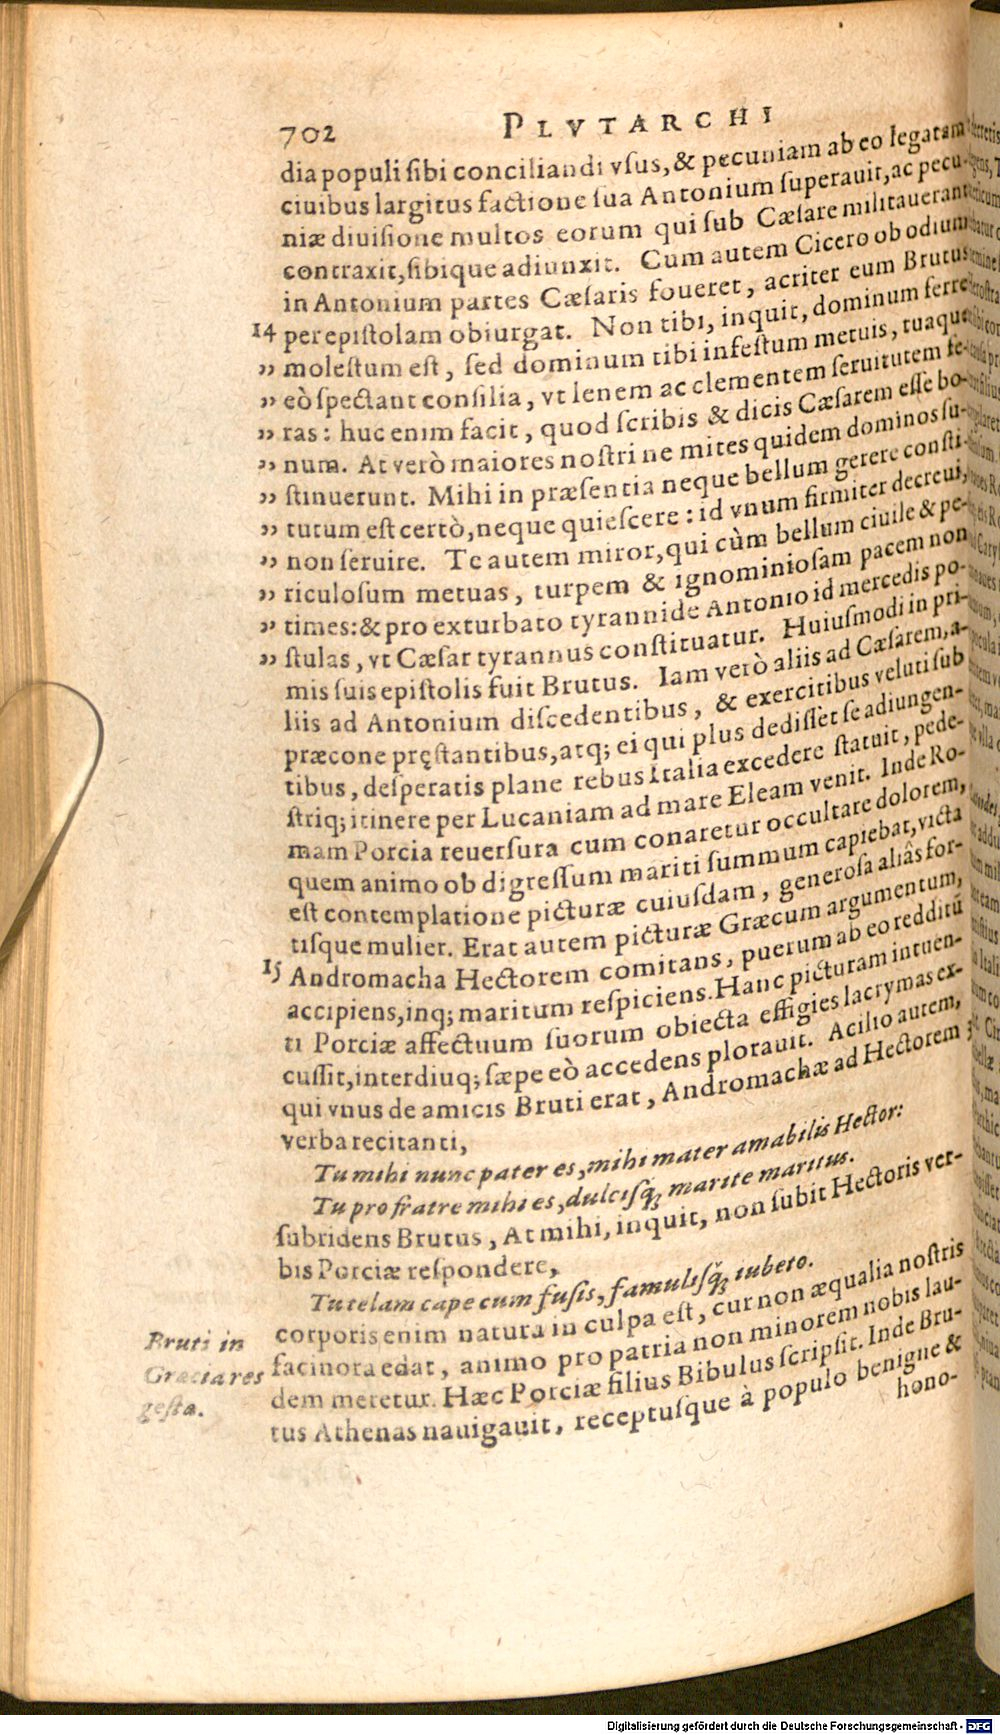 702 PLVTARCHI
dia populi ſibi conciliandi vſus, & pecuniam ab eo legatam
ciuibus largitus factione ſua Antonium ſuperauit, ac pecu-
niæ diuiſione multos eorum qui ſub Cæſare militauerant
contraxit, ſibique adiunxit. Cum autem Cicero ob odium
in Antonium partes Cæſaris foueret, acriter eum Brutus
14 per epiſtolam obiurgat. Non tibi, inquit, dominum ferre
„ moleſtum eſt, ſed dominum tibi infeſtum metuis, tuaque
„ eò ſpectant conſilia, vt lenem ac clementem ſeruitutem ſe-
„ ras: huc enim facit, quod ſcribis & dicis Cæſarem eſſe bo-
„ num. At verò maiores noſtri ne mites quidem dominos ſu-
„ ſtinuerunt. Mihi in præſentia neque bellum gerere conſti-
„ tutum eſt certò, neque quieſcere: id vnum firmiter decreui,
„ non ſeruire. Te autem miror, qui cùm bellum ciuile & pe-
„ riculoſum metuas, turpem & ignominioſam pacem non
„ times: & pro exturbato tyrannide Antonio id mercedis po-
„ ſtulas, vt Cæſar tyrannus conſtituatur. Huiuſmodi in pri-
mis ſuis epiſtolis fuit Brutus. Iam verò aliis ad Cæſarem, a-
liis ad Antonium diſcedentibus, & exercitibus veluti ſub
præcone pręſtantibus, atq; ei qui plus dediſſet ſe adiungen-
tibus, deſperatis plane rebus Italia excedere ſtatuit, pede-
ſtriq; itinere per Lucaniam ad mare Eleam venit. Inde Ro-
mam Porcia reuerſura cum conaretur occultare dolorem,
quem animo ob digreſſum mariti ſummum capiebat, victa
eſt contemplatione picturæ cuiuſdam, generoſa aliâs for-
tiſque mulier. Erat autem picturæ Græcum argumentum,
15 Andromacha Hectorem comitans, puerum ab eo redditũ
accipiens, inq; maritum reſpiciens. Hanc picturam intuen-
ti Porciæ affectuum ſuorum obiecta effigies lacrymas ex-
cuſſit, interdiuq; ſæpe eò accedens plorauit. Acilio autem,
qui vnus de amicis Bruti erat, Andromachæ ad Hectorem
verba recitanti,
Tu mihi nunc pater es, mihi mater amabilis Hector:
Tu pro fratre mihi es, dulciſq́; marite maritus.
ſubridens Brutus, At mihi, inquit, non ſubit Hectoris ver-
bis Porciæ reſpondere,
Tu telam cape cum fuſis, famuliſq́; iubeto.
corporis enim natura in culpa eſt, cur non æqualia noſtris
Bruti in
Græcia res
geſta.
facinora edat, animo pro patria non minorem nobis lau-
dem meretur. Hæc Porciæ filius Bibulus ſcripſit. Inde Bru-
tus Athenas nauigauit, receptuſque à populo benigne &
hono-
Digitalisierung gefördert durch die Deutsche Forschungsgemeinschaft - DFG